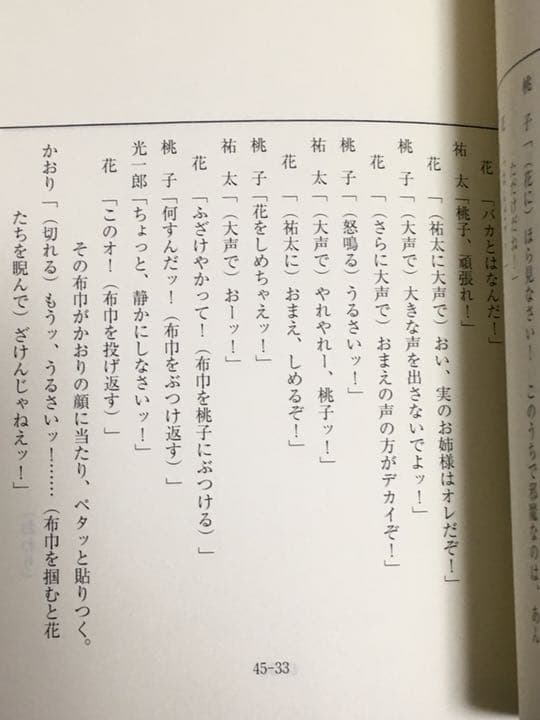 桃　子「（花に）ほら見なさい！　このうちで邪魔なのは、あん
花　「バカとはなんだ！」
祐　太「桃子、頑張れ！」
花　「（祐太に大声で）おい、実のお姉様はオレだぞ！」
桃　子「（大声で）大きな声を出さないでよッ！」
花　「（さらに大声で）おまえの声の方がデカイぞ！」
桃　子「（怒鳴る）うるさいッ！」
祐　太「（大声で）やれやれー、桃子ッ！」
花　「（祐太に）おまえ、しめるぞ！」
桃　子「花をしめちゃえッ！」
祐　太「（大声で）おーッ！」
花　「ふざけやかって！（布巾を桃子にぶつける）」
桃　子「何すんだッ！（布巾をぶつけ返す）」
光一郎「ちょっと、静かにしなさいッ！」
花　「このオ！（布巾を投げ返す）」
その布巾がかおりの顔に当たり、ペタッと貼りつく。
かおり「（切れる）もうッ、うるさいッ！………（布巾を掴むと花
たちを睨んで）ざけんじゃねえッ！」
45-33